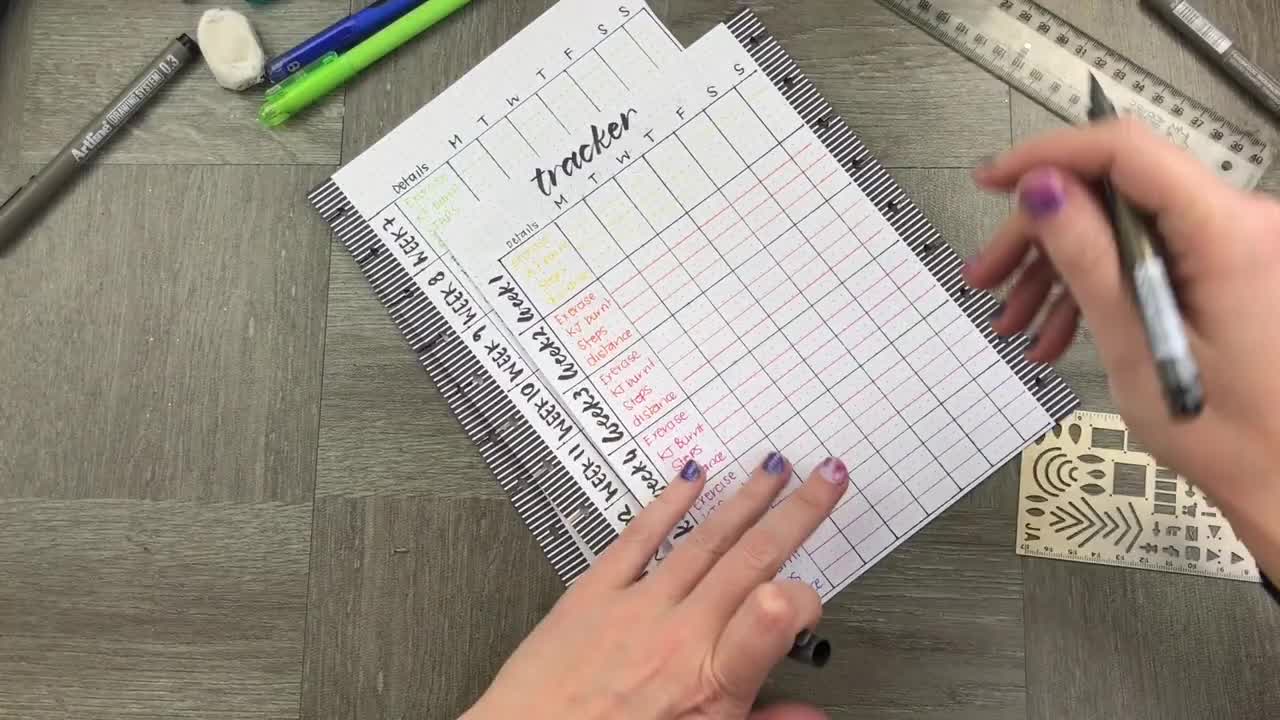 Artline DRAWING SYSTEM 0.3
M T W T F S S
Details
Exercise
KJ burnt
Steps
WEEK 7
WEEK 8
WEEK 9
WEEK 10
WEEK 11
tracker
M T W T F S S
Details
Exercise
KJ burnt
Steps
distance
Exercise
KJ burnt
Steps
distance
Exercise
KJ burnt
Steps
distance
Exercise
KJ Burnt
Steps
Exercise
week 1
week 2
week 3
week 4
27 28 29 30 31 32 33 34 35 36 37 38 39 40
JA